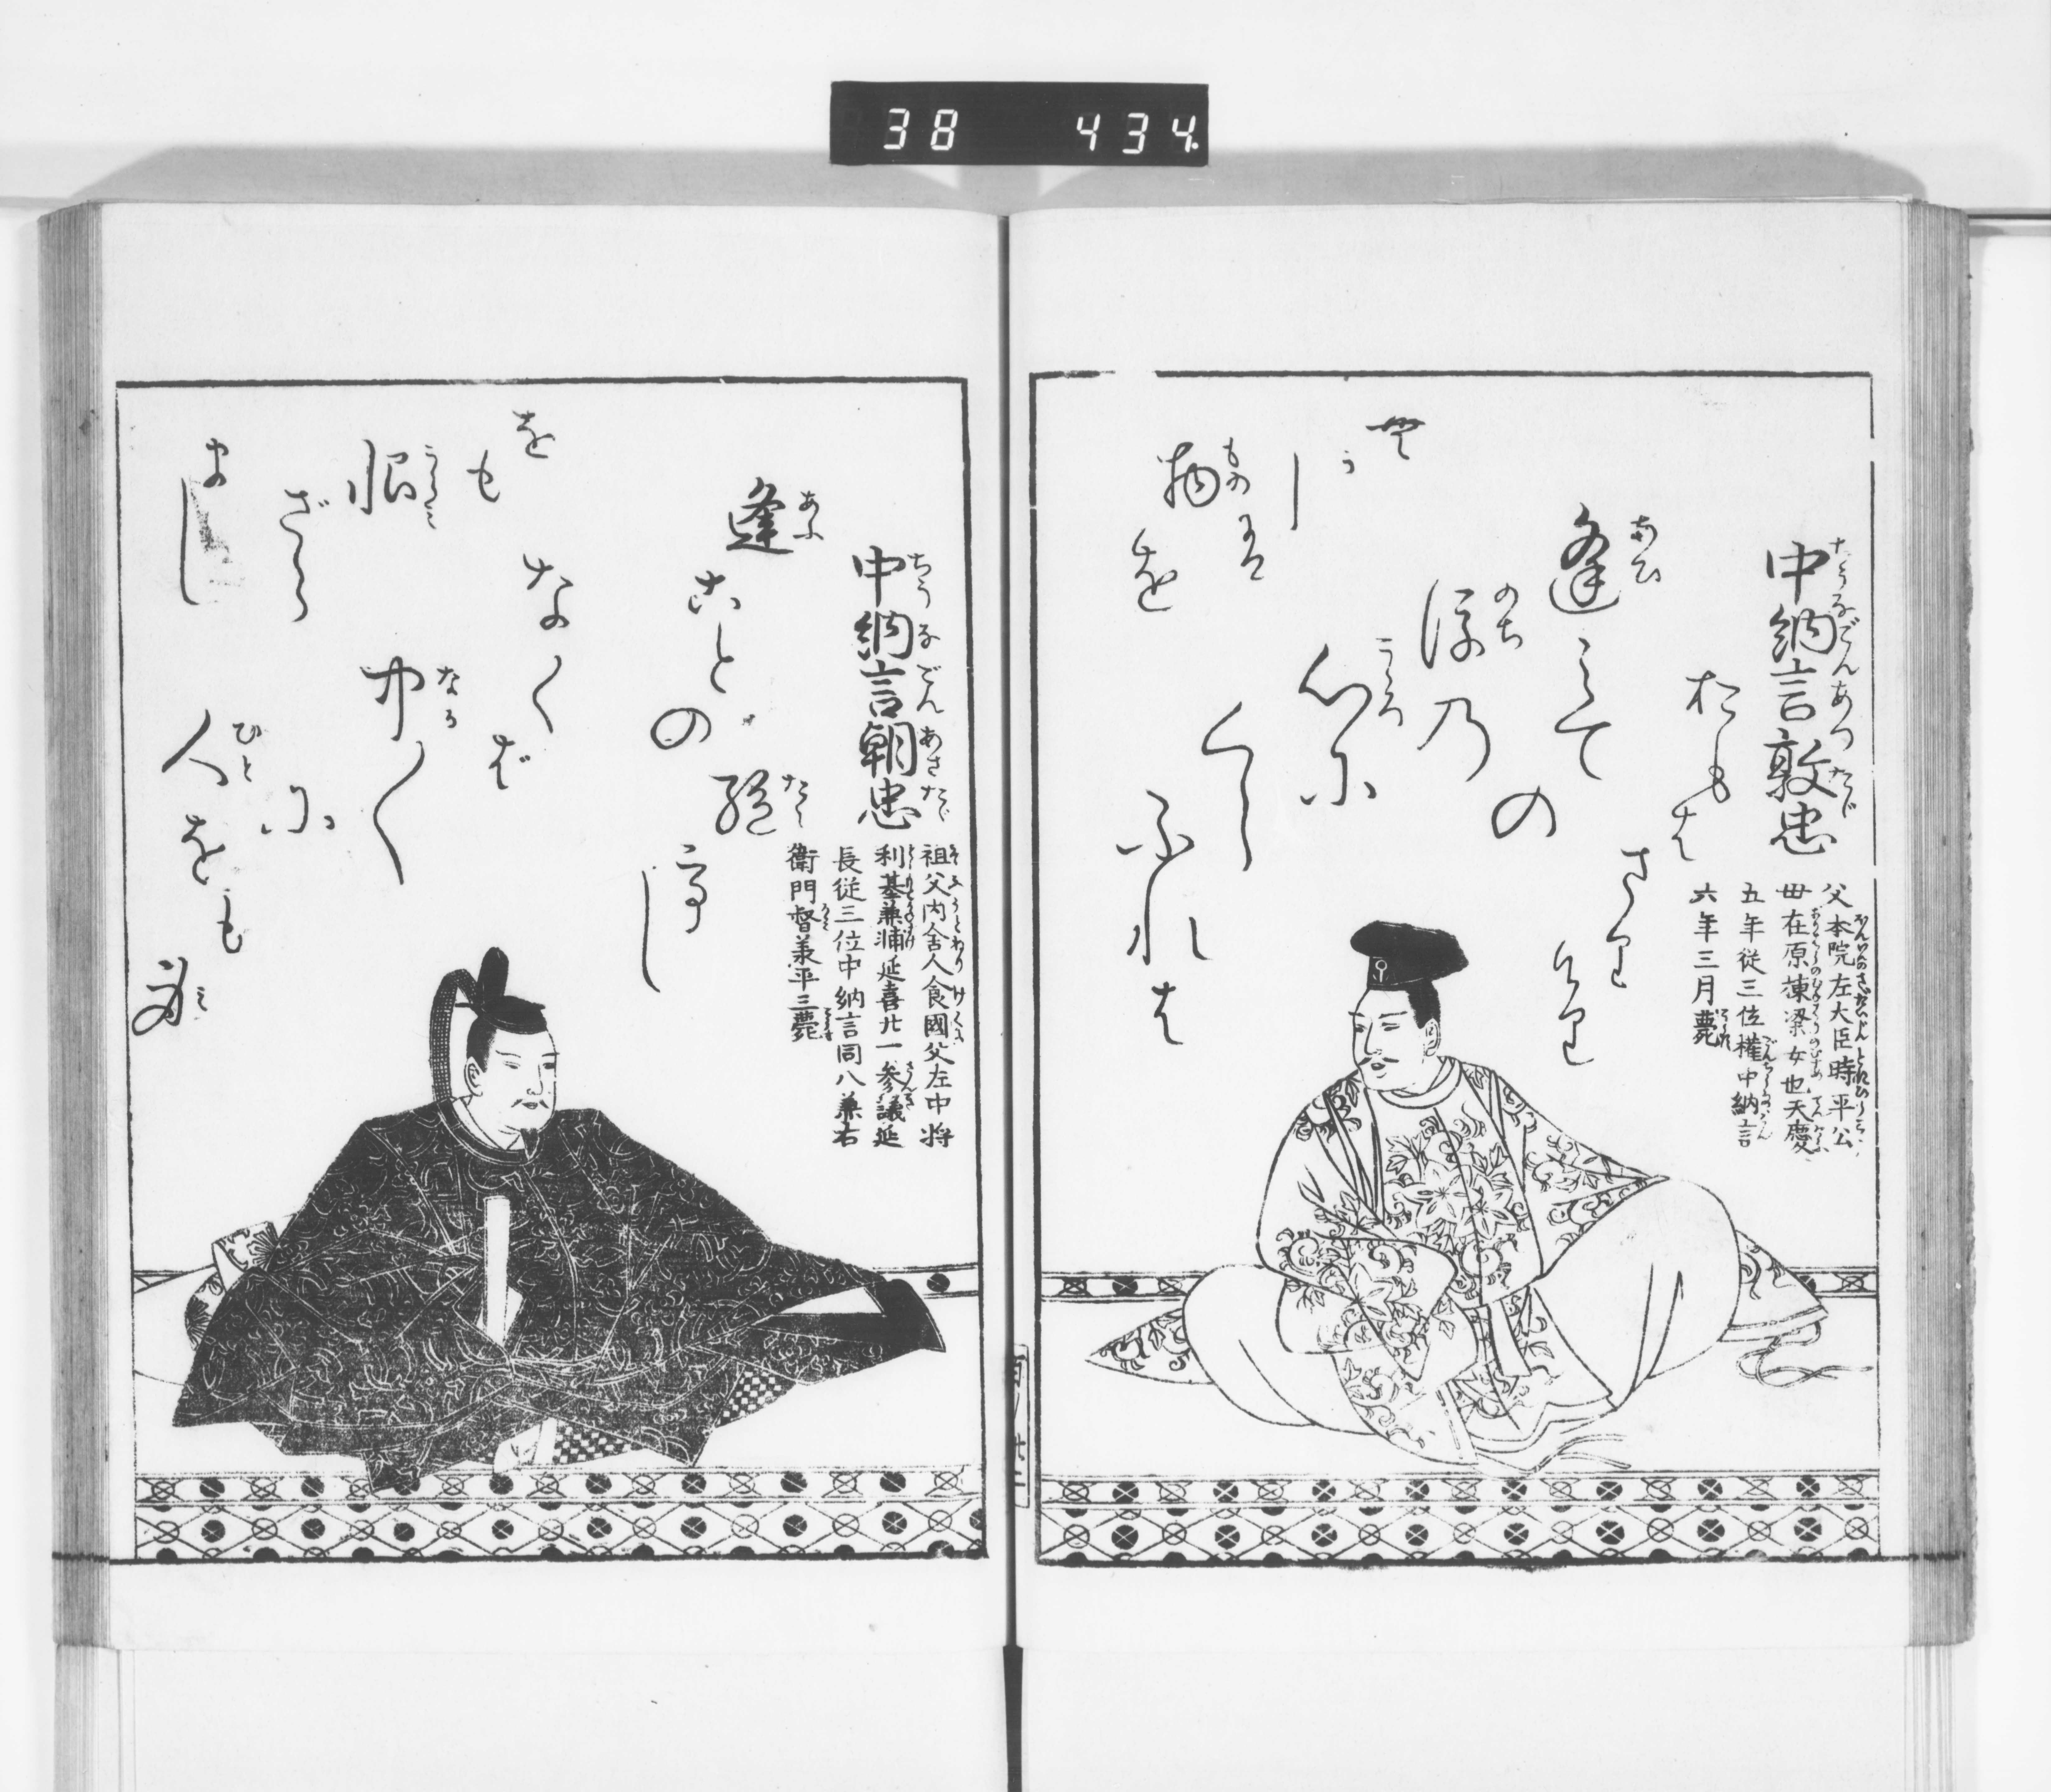 38 434
中納言敦忠
父本院左大臣時平公
毋在原棟梁女也天慶
五年従三位權中納言
六年三月薨
逢みての
後乃
心に
くら
ふれは
むかし
は
物を
おもは
さり
けり
中納言朝忠
祖父内舎人食國父左中将
利基兼浦延喜廿一参議延
長従三位中納言同八兼右
衛門督兼平三薨
逢
ことの
絶
てし
なくば
中〳〵
に
人をも
身
をも
恨
ざら
まし